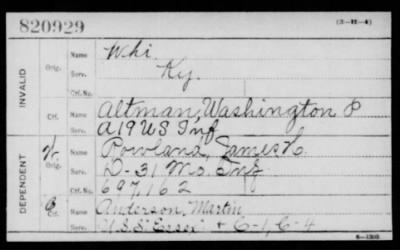 820929 (3-11-4)
INVALID
Orig. Name Whi
Serv. Ky.
Ctf. No.
Ctf. Name Altman, Washington P
Serv. A 19 US Inf
DEPENDENT
Orig. Name Rowland, James
Serv. D-31 Mo. Inf
Ctf. No. 697,162
Ctf. Name Anderson, Martin
Serv. U.S.S. "Essex" + C-1, C-4